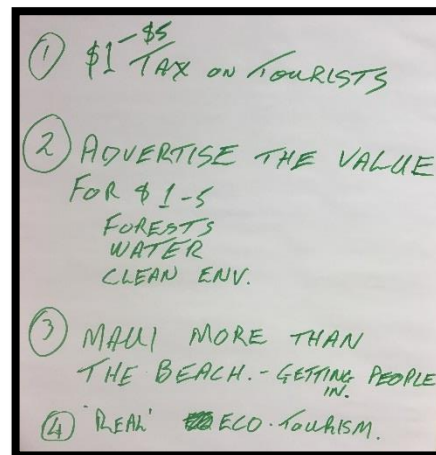 ① $1-$5 TAX ON TOURISTS
② ADVERTISE THE VALUE
FOR $1-5
FORESTS
WATER
CLEAN ENV.
③ MAUI MORE THAN
THE BEACH. - GETTING PEOPLE
IN.
④ 'REAL' ECO-TOURISM.